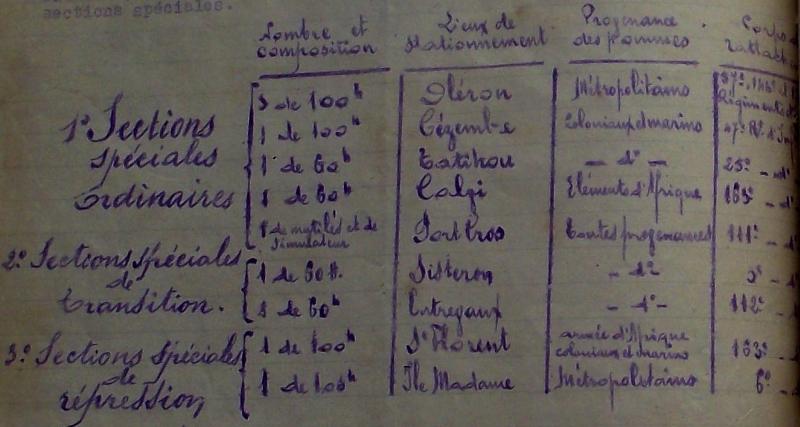 sections spéciales.
Nombre et composition | Lieux de Stationnement | Provenance des hommes | Corps de rattach
1º Sections spéciales ordinaires
3 de 100h | Oléron | Métropolitains | Régiments
1 de 100h | Cézembre | Coloniaux et marins | 47e Rt d'Inf
1 de 60h | Tatihou | — dº — | 25e — d
1 de 60h | Calvi | Eléments d'Afrique | 163e — d
1 de mutilés et de simulateurs | Port Cros | Toutes provenances | 111e — d
2º Sections spéciales de transition.
1 de 60h. | Sisteron | — dº | 3e — d
1 de 60h | Entrevaux | — dº — | 112e — d
3º Sections spéciales de répression
1 de 100h | St Florent | armée d'Afrique coloniaux et marins | 163e — d
1 de 100h | Île Madame | Métropolitains | 6e — d